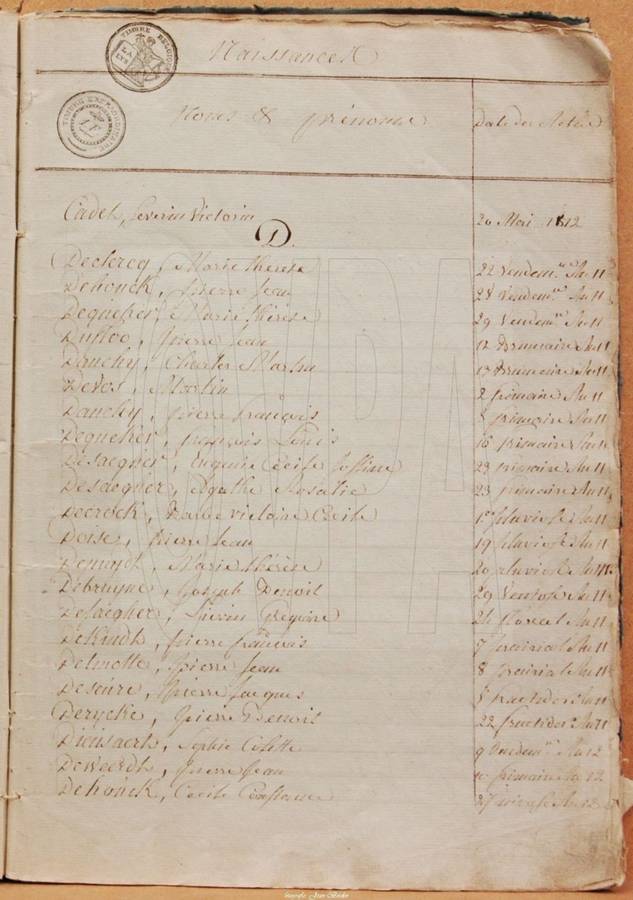 TIMBRE
Naissances
TIMBRE EXTRAORDINAIRE
Noms & prénoms Date des Actes
Cadet, Severin Victorin 20 Mai 1812
D.
Declercq, Marie therese 22 Vendem.re An 11
Dehouck, pierre Jean 28 Vendem.re An 11
Dequeker, Marie thérèse 29 Vendem.re An 11
pierre Jean 12 Brumaire An 11
Danchy, Charles Martin Brumaire An 11
Devos, Martin 2 frimaire An 11
Danchy, pierre françois frimaire An 11
Dequeker, françois Louis 16 frimaire An 11
Desaegher, Eugenie Cécile 23 frimaire An 11
Desaegher, Agathe Rosalie 23 frimaire An 11
Decrock, Victoire Cécile 1er pluviose An 11
Doise, pierre Jean 19 pluviose An 11
Marie thérèse 20 pluviose An 11
Debruyne, Joseph Benoit 29 Ventose An 11
Desaegher, Livin Gregoire floreal An 11
Dekindt, pierre françois 7 prairial An 11
Delmotte, pierre Jean 8 prairial An 11
pierre Jacques fructidor An 11
Derycke, pierre Benoit 22 fructidor An 11
Sophie Colette 9 Vendem.re An 12
Deweerdt, pierre Jean frimaire An 12
Dehouck, Cecile Constance 27 An 12